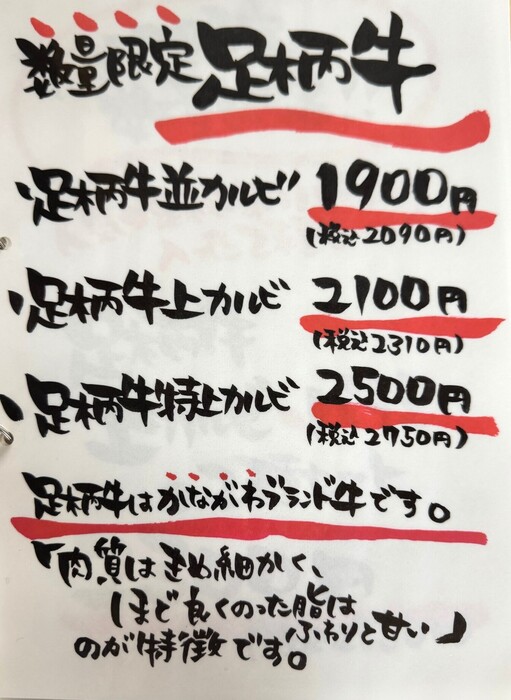 数量限定 足柄牛
・足柄牛並カルビ 1900円
(税込2090円)
・足柄牛上カルビ 2100円
(税込2310円)
・足柄牛特上カルビ 2500円
(税込2750円)
足柄牛はかながわブランド牛です。
「肉質はきめ細かく、
ほど良くのった脂は
ふわりと甘い」
のが特徴です。